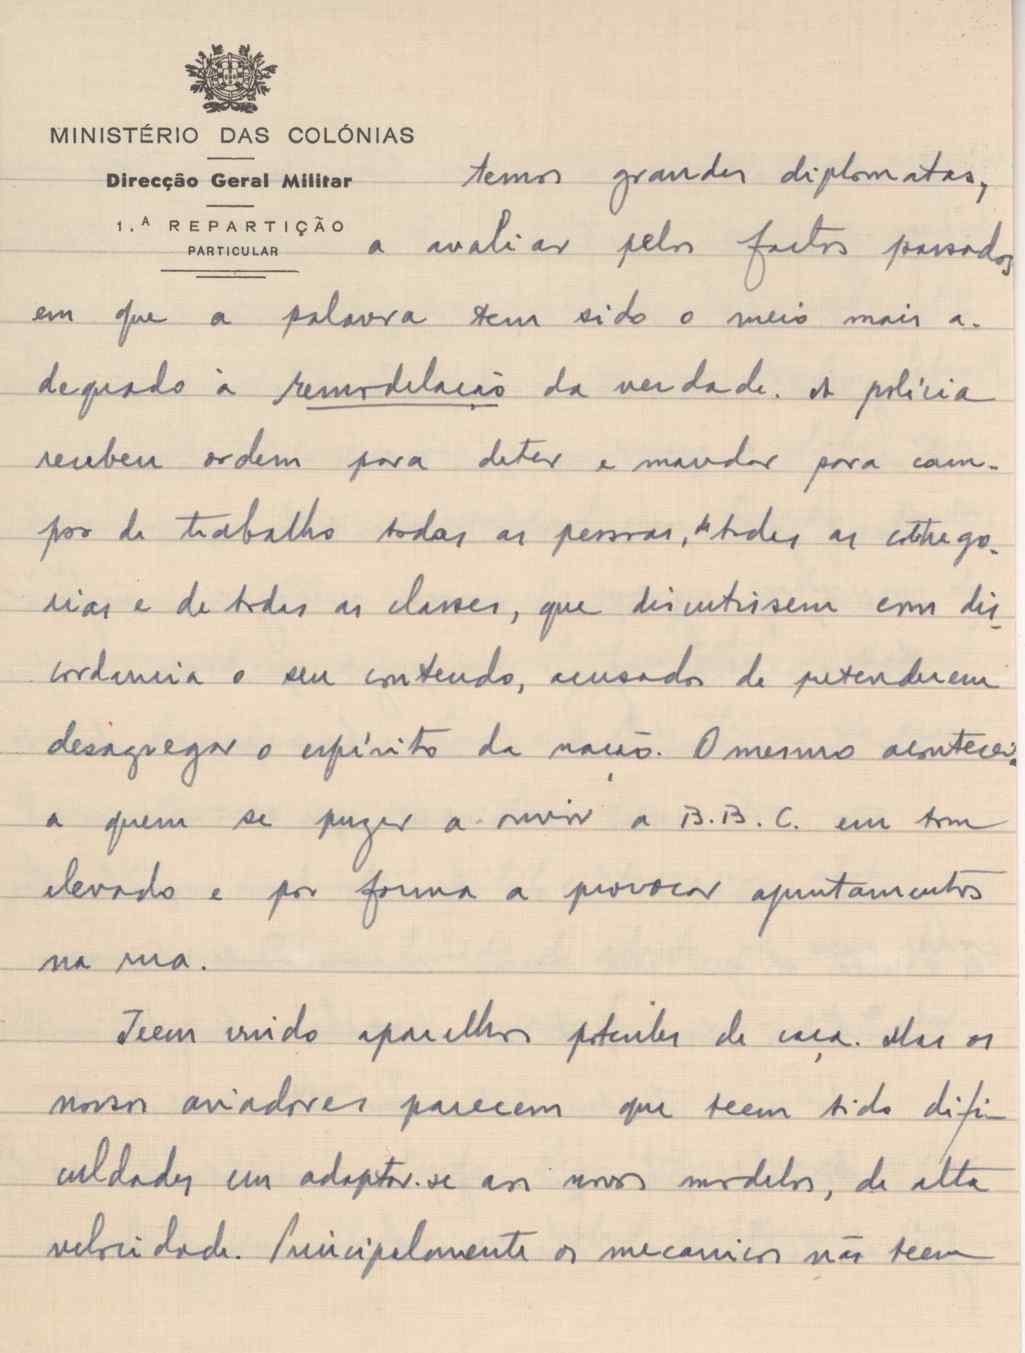 MINISTÉRIO DAS COLÓNIAS
Direcção Geral Militar
1.ª REPARTIÇÃO
PARTICULAR
temos grandes diplomatas,
a avaliar pelos factos passados
em que a palavra tem sido o meio mais a-
dequado à remodelação da verdade. A polícia
recebeu ordem para deter e mandar para cam-
pos de trabalho todas as pessoas, de todas as catego-
rias e de todas as classes, que discutissem com dis-
cordancia o seu contendo, acusados de pretenderem
desagregar o espírito da nação. O mesmo acontecerá
a quem se puzer a ouvir a B.B.C. em tom
elevado e por forma a provocar ajuntamentos
na rua.
Teem vindo aparelhos potentes de caça. Mas os
nossos aviadores parecem que teem tido difi-
culdades em adaptar-se aos novos modelos, de alta
velocidade. Principalmente os mecanicos não teem